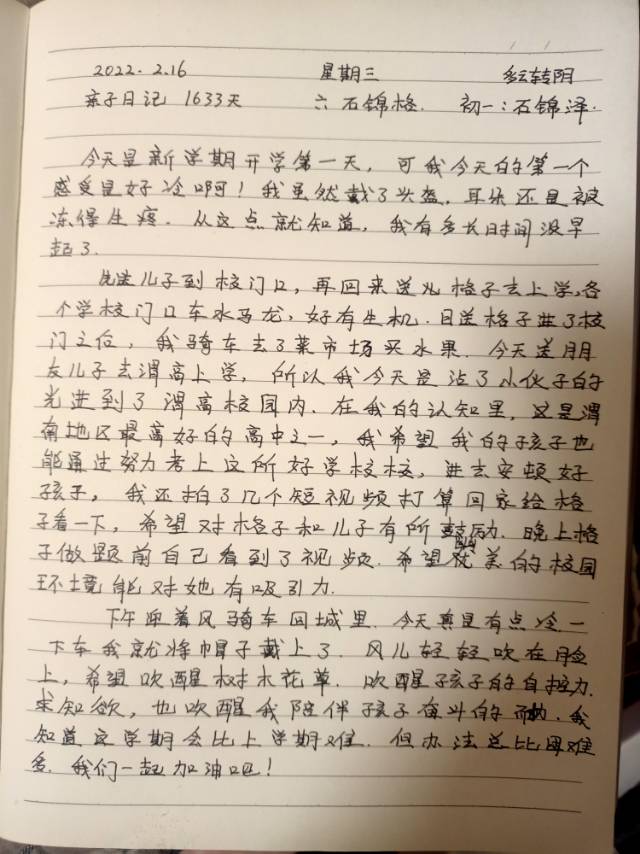 2022. 2.16 星期三 多云转阴
亲子日记 1633天 六 石锦格. 初一:石锦泽.
今天是新学期开学第一天, 可我今天的第一个
感受是好冷啊! 我虽然戴了头盔. 耳朵还是被
冻得生疼. 从这点就知道, 我有多长时间没早
起了.
先送儿子到校门口, 再回来送 格子去上学,各
个学校门口车水马龙, 好有生机. 目送格子进了校
门之位, 我骑车去了菜市场买水果. 今天送朋
友儿子去渭高上学, 所以我今天是沾了小伙子的
光进到了渭高校园内. 在我的认知里, 这是渭
南地区最高好的高中之一, 我希望我的孩子也
能通过努力考上这所好学校校, 进去安顿好
孩子, 我还拍了几个短视频打算回家给格
子看一下, 希望对格子和儿子有所鼓励. 晚上格
子做题前自己看到了视频. 希望优美的校园
环境能对她有吸引力.
下午迎着风骑车回城里. 今天真是有点冷. 一
下车我就将帽子戴上了. 风儿轻轻吹在脸
上, 希望吹醒树木花草. 吹醒孩子的自控力.
求知欲, 也吹醒我陪伴孩子奋斗的 . 我
知道这学期会比上学期难. 但办法总比困难
多. 我们一起加油吧!